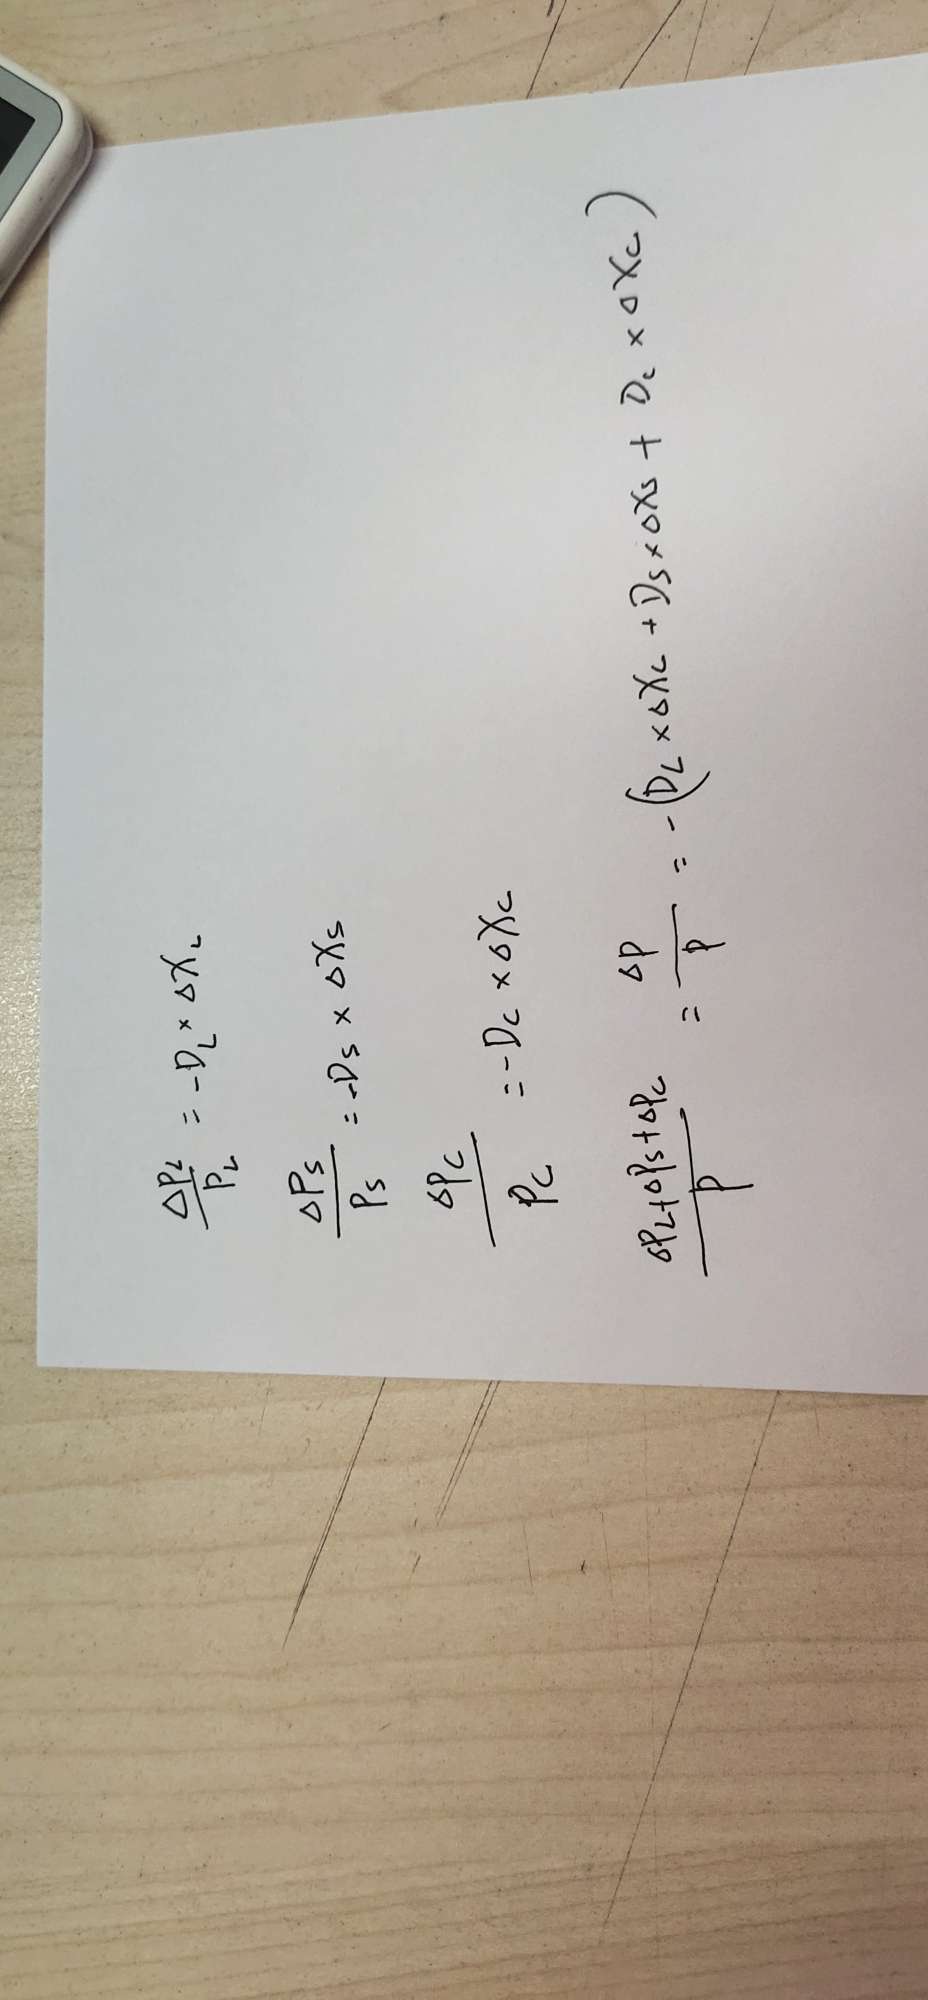 ΔPL/PL = -DL × ΔXL
ΔPS/PS = -DS × ΔXS
ΔPC/PC = -DC × ΔXC
ΔPL+ΔPS+ΔPC/P = ΔP/P = -(DL × ΔXL + DS × ΔXS + DC × ΔXC)